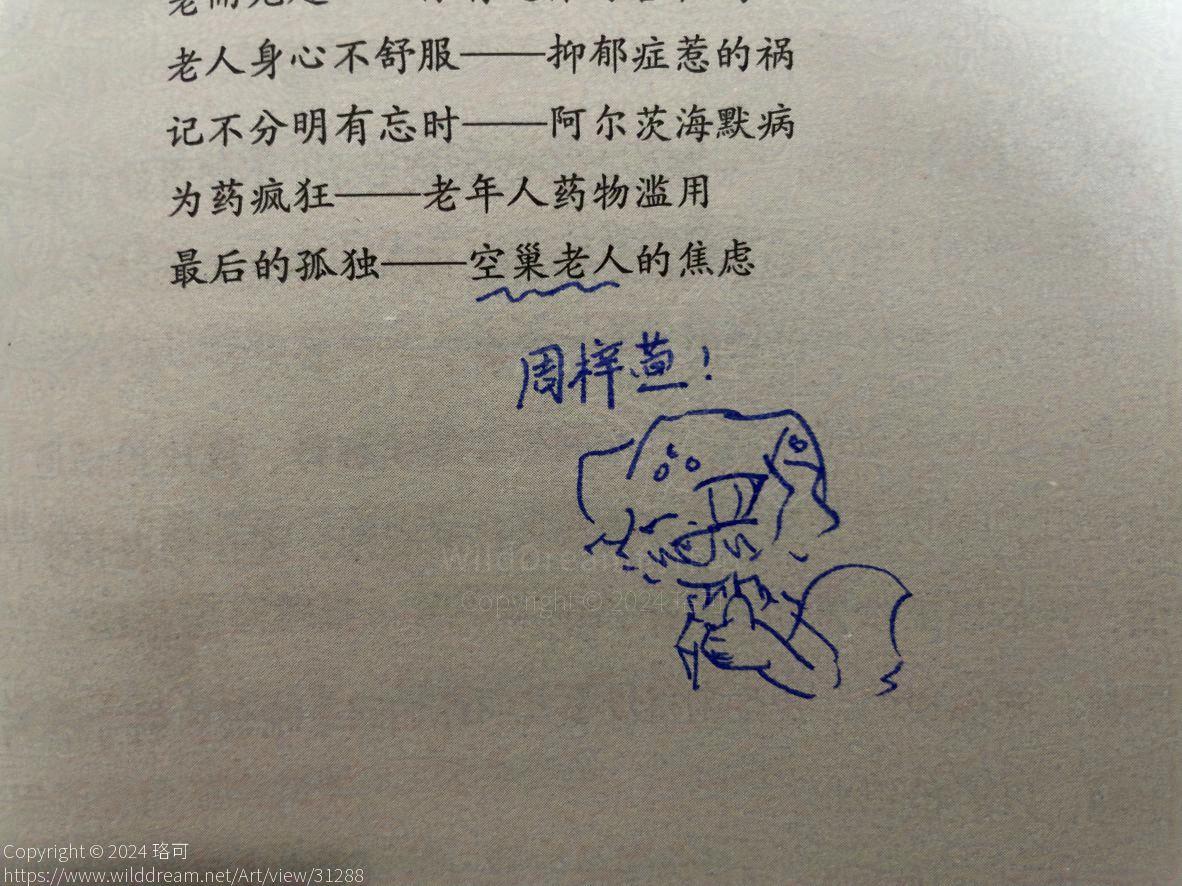 老人身心不舒服——抑郁症惹的祸
记不分明有忘时——阿尔茨海默病
为药疯狂——老年人药物滥用
最后的孤独——空巢老人的焦虑
周梓萱！
Copyright © 2024 珞可
https://www.wilddream.net/Art/view/31288